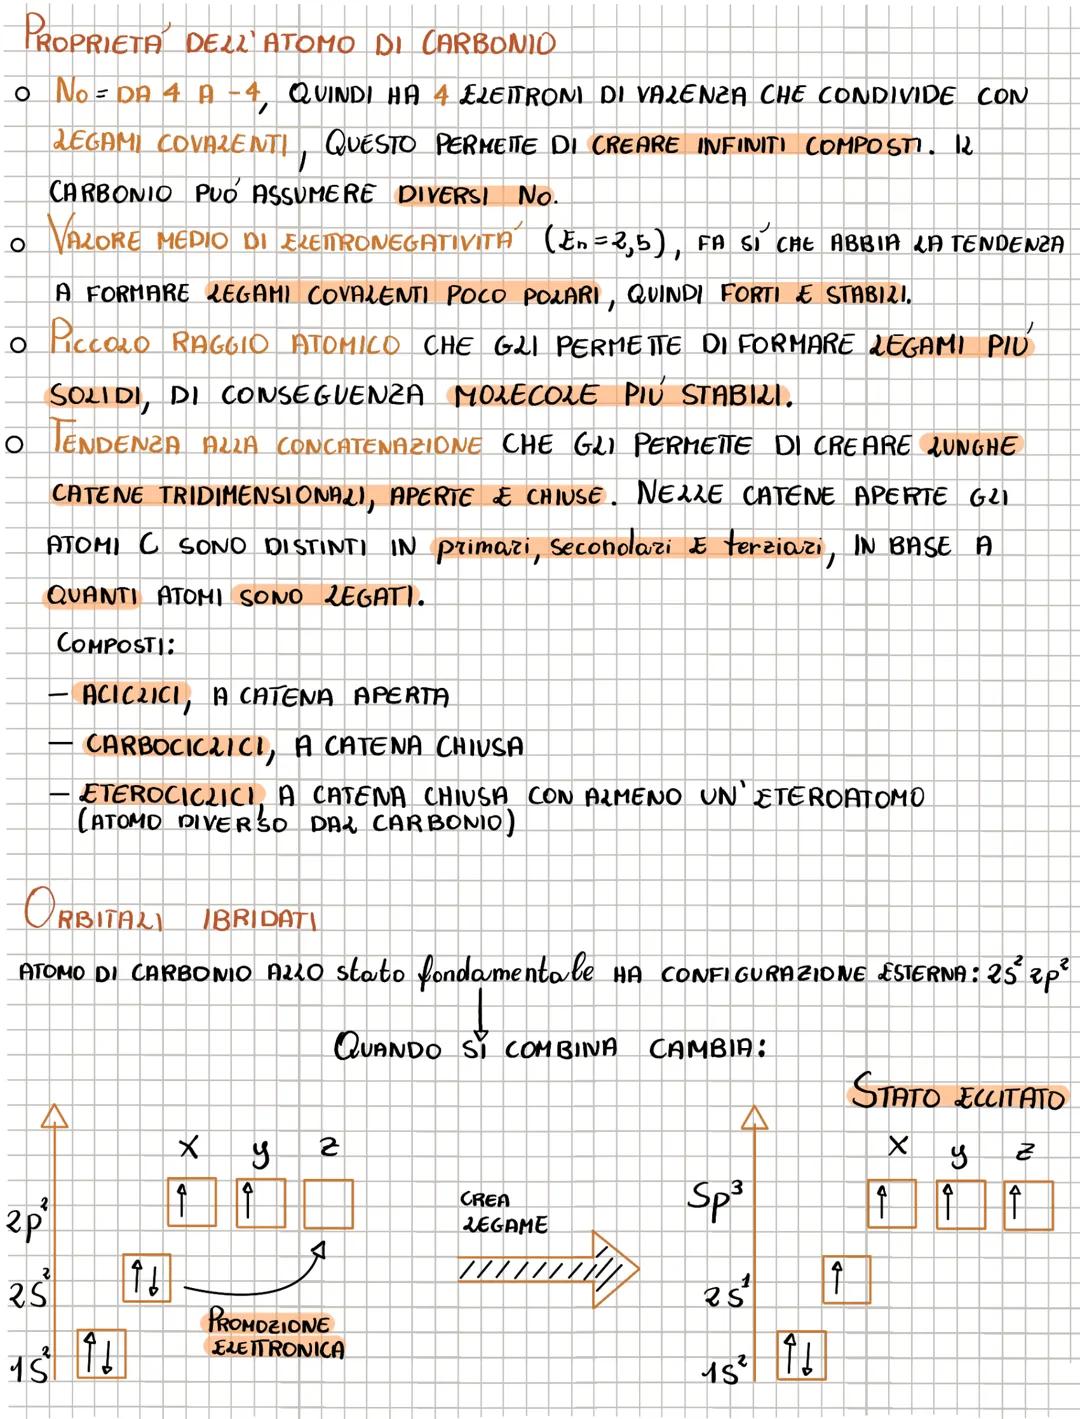 PROPRIETÀ DELL'ATOMO DI CARBONIO
○ No = DA 4 A -4, QUINDI HA 4 ELETTRONI DI VALENZA CHE CONDIVIDE CON
LEGAMI COVALENTI, QUESTO PERMETTE DI CREARE INFINITI COMPOSTI. IL
CARBONIO PUÓ ASSUMERE DIVERSI No.
○ VALORE MEDIO DI ELETTRONEGATIVITÁ (En=2,5), FA SÍ CHE ABBIA LA TENDENZA
A FORMARE LEGAMI COVALENTI POCO POLARI, QUINDI FORTI E STABILI.
○ PICCOLO RAGGIO ATOMICO CHE GLI PERMETTE DI FORMARE LEGAMI PIÚ
SOLIDI, DI CONSEGUENZA MOLECOLE PIÚ STABILI.
○ TENDENZA ALLA CONCATENAZIONE CHE GLI PERMETTE DI CREARE LUNGHE
CATENE TRIDIMENSIONALI, APERTE E CHIUSE. NELLE CATENE APERTE GLI
ATOMI C SONO DISTINTI IN primari, secondari E terziari, IN BASE A
QUANTI ATOMI SONO LEGATI.
COMPOSTI:
– ACICLICI, A CATENA APERTA
– CARBOCICLICI, A CATENA CHIUSA
– ETEROCICLICI, A CATENA CHIUSA CON ALMENO UN' ETEROATOMO
(ATOMO DIVERSO DAL CARBONIO)
ORBITALI IBRIDATI
ATOMO DI CARBONIO ALLO stato fondamentale HA CONFIGURAZIONE ESTERNA: 2s² 2p²
↓
QUANDO SI COMBINA CAMBIA:
STATO ECCITATO
x y z
x y z
2p² ↑ ↑
CREA
LEGAME
Sp³ ↑ ↑ ↑
2S² ↑↓
2S¹ ↑
PROMOZIONE
ELETTRONICA
1S² ↑↓
1S² ↑↓